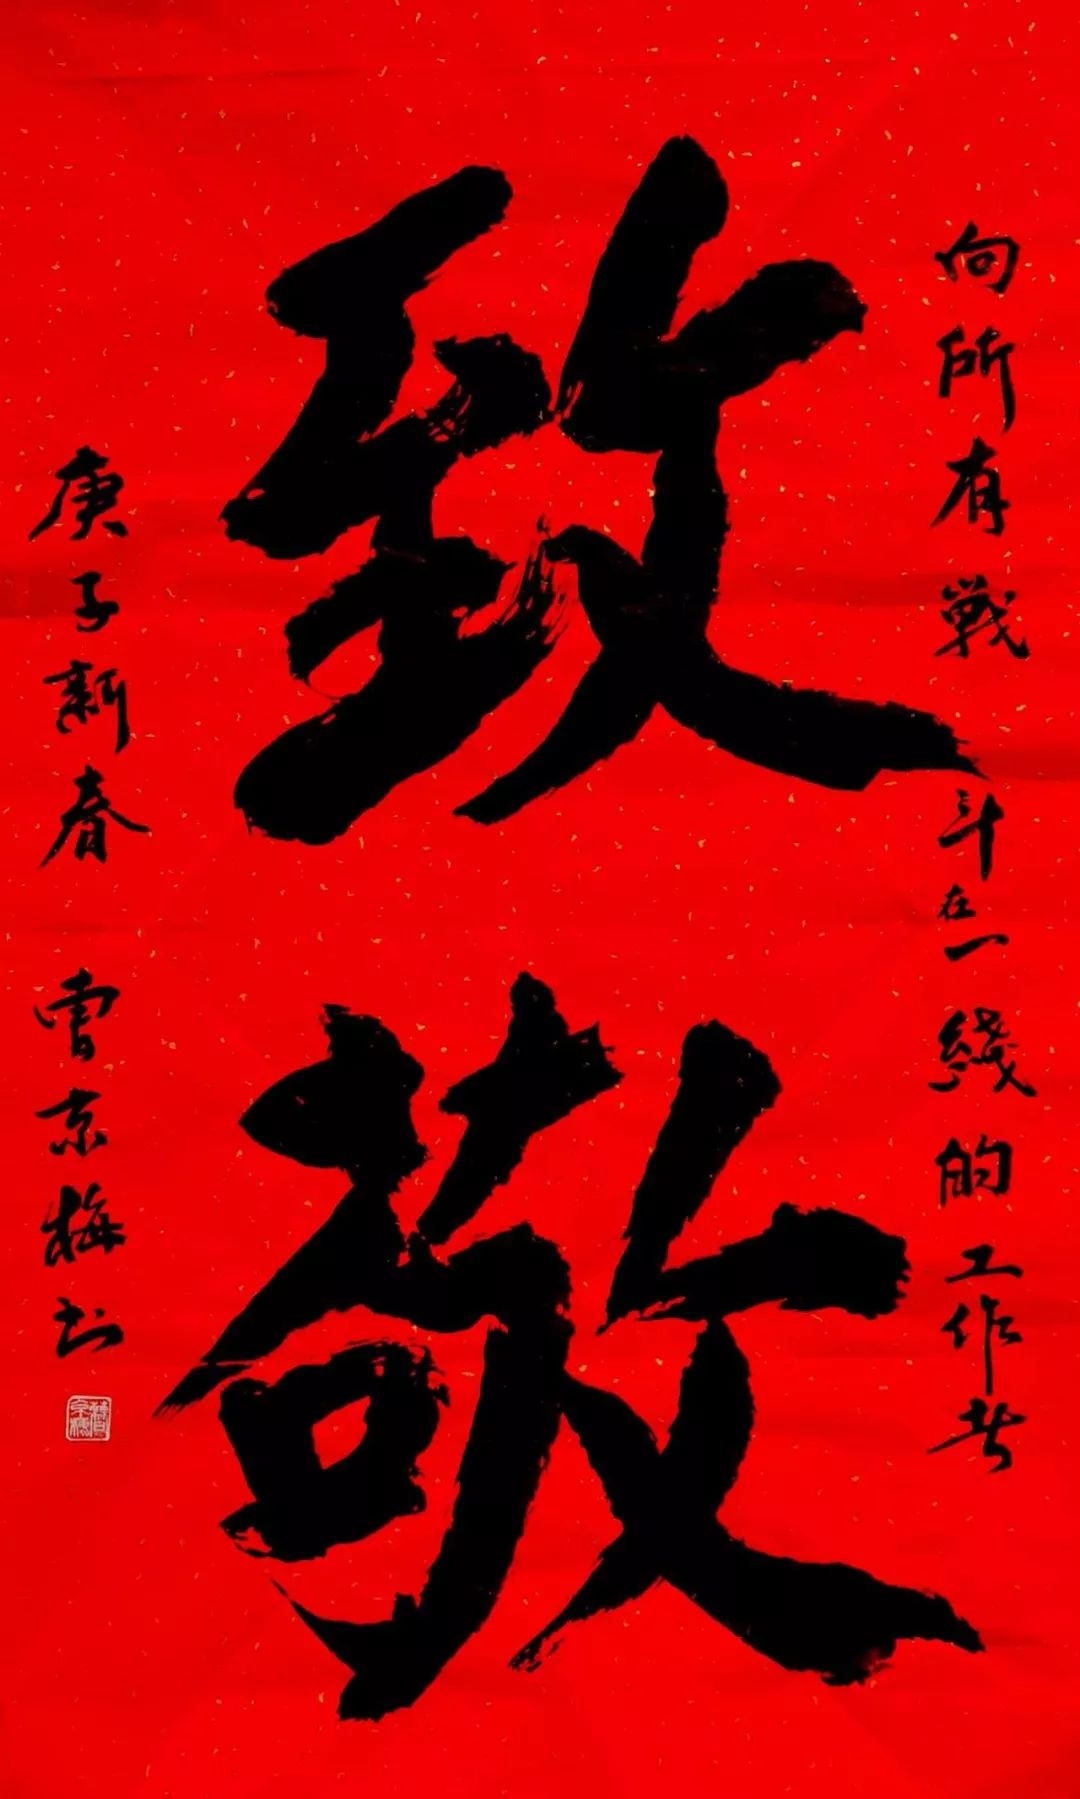 向所有戰斗在一綫的工作者
致敬
庚子新春 曹京梅书